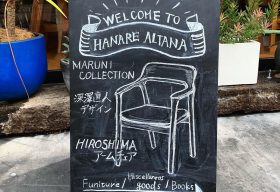 WELCOME TO
HANARE ALTANA
MARUNI
COLLECTION
深澤直人
デザイン
HIROSHIMA
アームチェア
Miscellaneous
Funiture / goods / Books